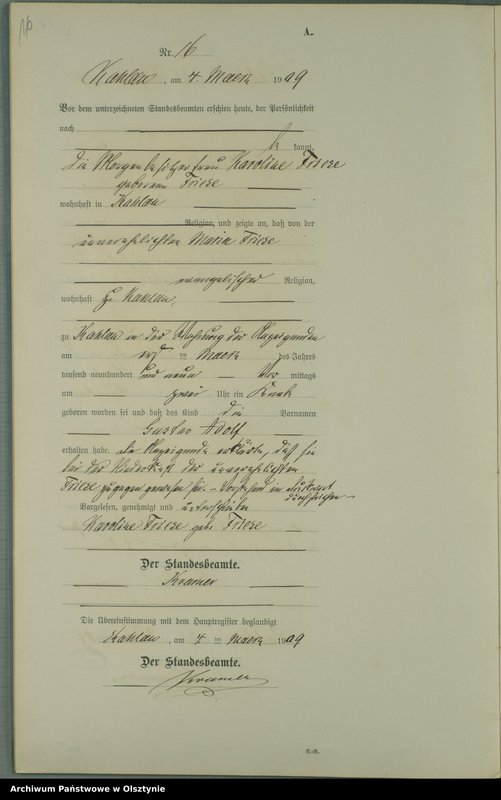 16
A.
Nr. 16
Kahlau, am 4. Maerz 1909
Vor dem unterzeichneten Standesbeamten erschien heute, der Persönlichkeit
nach
be kannt,
die Morgenbesitzerfrau Karoline Friese
geborene Friese
wohnhaft in Kahlau
Religion, und zeigte an, daß von der
unverehelichten Maria Friese
evangelischer Religion,
wohnhaft zu Kahlau,
zu Kahlau in der Wohnung der Anzeigenden
am ersten Maerz des Jahres
tausend neunhundert und neun Vor mittags
um zwei Uhr ein Knabe
geboren worden sei und daß das Kind die Vornamen
Gustav Adolf
erhalten habe. Die Anzeigende erklärte, daß sie
bei der Niederkunft der unverehelichten
Friese zugegen gewesen sei. – Vorstehend ein
durchstrichen –
Vorgelesen, genehmigt und unterschrieben
Karoline Friese geb. Friese
Der Standesbeamte.
Kramer
Die Übereinstimmung mit dem Hauptregister beglaubigt
Kahlau, am 4. ten Maerz 1909
Der Standesbeamte.
Kramer
N.-R.
Archiwum Państwowe w Olsztynie